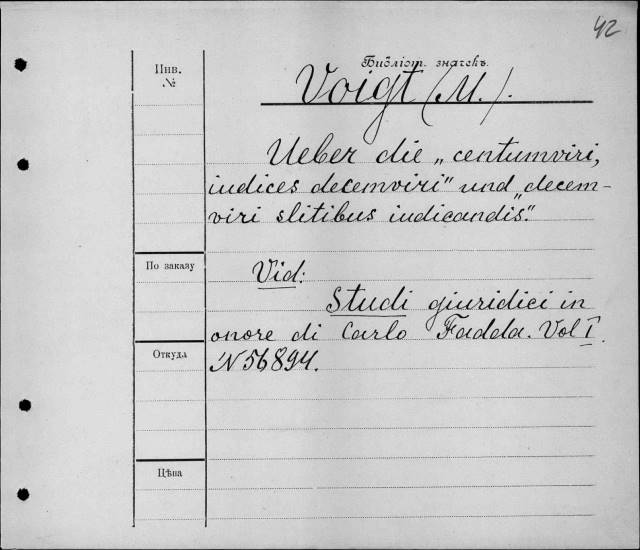 42
Библіот. значекъ.
Инв.
№
Voigt (M.).
Ueber die „centumviri,
iudices decemviri" und „decem-
viri slitibus iudicandis".
По заказу
Vid:
Studi giuridici in
onore di Carlo Fadda. Vol I.
Откуда
N 56894.
Цѣна